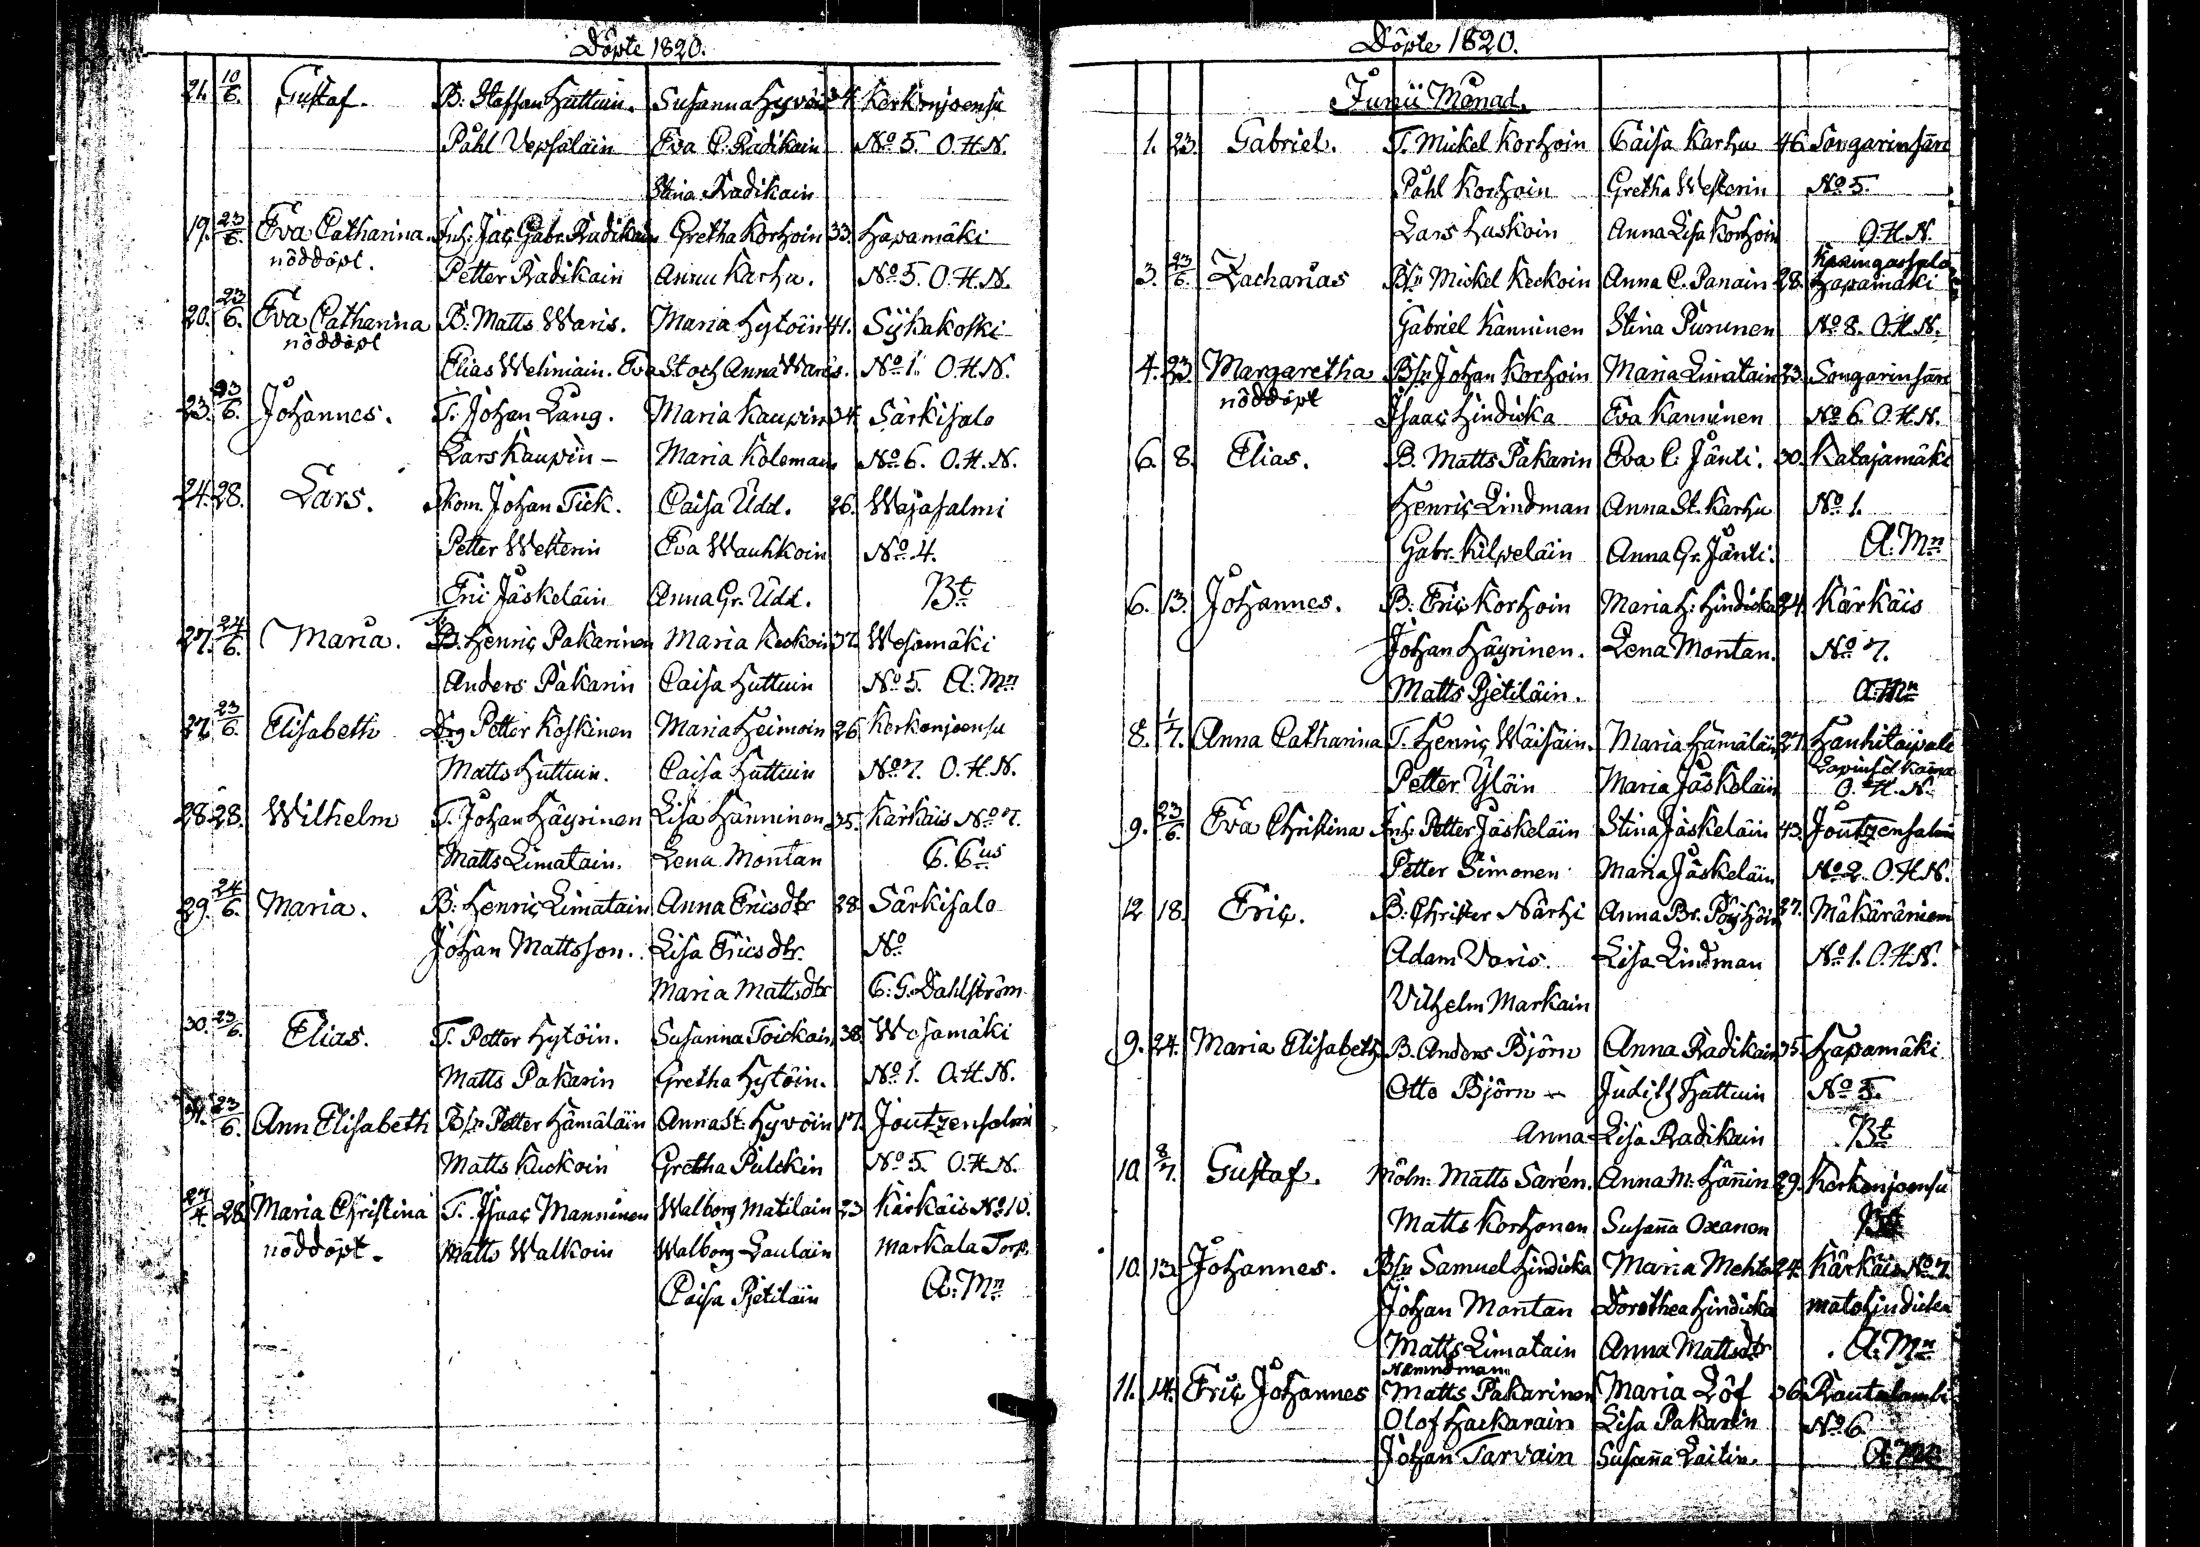 Döpte 1820.
21. 10/6. Gustaf. B. Staffan Huttuin. Susanna Hyvöin 34. Kerkonjoensu
Påhl Vepsäläin Eva C. Radikain No 5. O.H.N.
Stina Radikain
19. 23/6. Eva Catharina. Inh: Jac. Gabr. Radikain Gretha Korhoin 33. Hapamäki
nöddöpt. Petter Radikain Anna Karhu. No 5. O.H.N.
20. 23/6. Eva Catharina B: Matts Waris. Maria Hytöin 41. Sijkakoski
nöddöpt
Elias Wehniain. Eva St och Anna Waris. No 1. O.H.N.
23. 23/6. Johannes. T. Johan Lang. Maria Kaupin 34. Särkisalo
Lars Kaupin – Maria Koleman No 6. O.H.N.
24. 28. Lars. Skom. Johan Tick. Caisa Udd. 26. Wajasalmi
Petter Westerin Eva Wauhkoin No 4.
Eric Jäskeläin Anna Gr. Udd. Bt
27. 24/6. Maria. B. Henric Pakarinen Maria Keckoin 37. Wesamäki
Anders Pakarin Caisa Huttuin No 5. A: Mn
27. 23/6. Elisabeth Drg Petter Koskinen Maria Heimoin 26 Kerkonjoensu
Matts Huttuin. Caisa Huttuin No 7. O.H.N.
28. 28. Wilhelm T. Johan Häyrinen Lisa Hänninen 35. Kärkäis No 7.
Matts Limatain. Lena Montan C. Cus
29. 24/6. Maria. B: Henric Limatain Anna Ericsdtr 28 Särkisalo
Johan Mattsson. Lisa Ericsdtr. No
Maria Mattsdtr C: G. Dahlström
30. 23/6. Elias. T. Petter Hytöin. Susanna Toickain 38. Wesamäki
Matts Pakarin Gretha Hytöin. No 1. O.H.N.
31. 23/6. Ann Elisabeth Bsn Petter Hämäläin Anna St: Hyvöin 17. Joutzensalmi
Matts Kuckoin Gretha Pulckin No 5. O.H.N.
27/4. 28. Maria Christina T. Isaac Manninen Walborg Matilain 23 Kärkäis No 10.
nöddöpt. Matts Walkoin Walborg Laulain Markala Torp.
Caisa Pjetiläin A: Mn
Döpte 1820.
Junii Månad.
1. 23. Gabriel. T. Mickel Korhoin Caisa Karhu 46. Songarinsari
Påhl Korhoin Gretha Westerin No 5.
Lars Huskoin Anna Lisa Korhoin O.H.N.
3. 23/6. Zacharias Bsn Mickel Keckoin Anna C. Panain 28. Hapamäki
Gabriel Kanninen Stina Purunen No 8. O.H.N.
4. 23. Margaretha Bsn Johan Korhoin Maria Limatain 23. Songarinsari
nöddöpt Isaac Hindicka Eva Kanninen No 6. O.H.N.
6. 8. Elias. B. Matts Pakarin Eva C: Jänti. 30. Katajamäki
Henric Lindman Anna St. Karhu No 1.
Gabr. Kilpeläin Anna Gr. Jänti. A: Mn
6. 13. Johannes. B: Eric Korhoin Maria H: Hindicka 24. Kärkäis
Johan Häyrinen. Lena Montan. No 7.
Matts Pjetiläin. A: Mn
8. 1/7. Anna Catharina T. Henric Wäisäin. Maria Hämäläin 27. Hanhitaipale
Petter Yläin Maria Jäskeläin O.H.N.
9. 23/6. Eva Christina Inh: Petter Jäskeläin Stina Jäskeläin 43. Joutzensalmi
Petter Simonen Maria Jäskeläin No 2. O.H.N.
12 18. Eric. B: Christer Närhi Anna Br. Pöyhöin 27. Mäkäräniemi
Adam Varis. Lisa Lindman No 1. O.H.N.
Vilhelm Markain
9. 24. Maria Elisabeth B. Anders Björn Anna Radikain 35. Hapamäki
Otto Björn – Judith Huttuin No 3.
Anna Lisa Radikain Bt
10. 8/7. Gustaf. Möln: Matts Sarén. Anna M: Hännin 29. Kerkonjoensu
Matts Korhonen Susanna Oxanen Bt
10. 13. Johannes. Bsn Samuel Hindicka Maria Mehto 24. Kärkäis No 7.
Johan Montan Dorothea Hindicka Mats Hindicka
Matts Limatain Anna Mattsdtr A: Mn
Nämndman
11. 14. Eric Johannes Matts Pakarinen Maria Löf 36. Rautalambi
Olof Hackarain Lisa Pakarin No 6
Johan Tarvain Susanna Laitin.